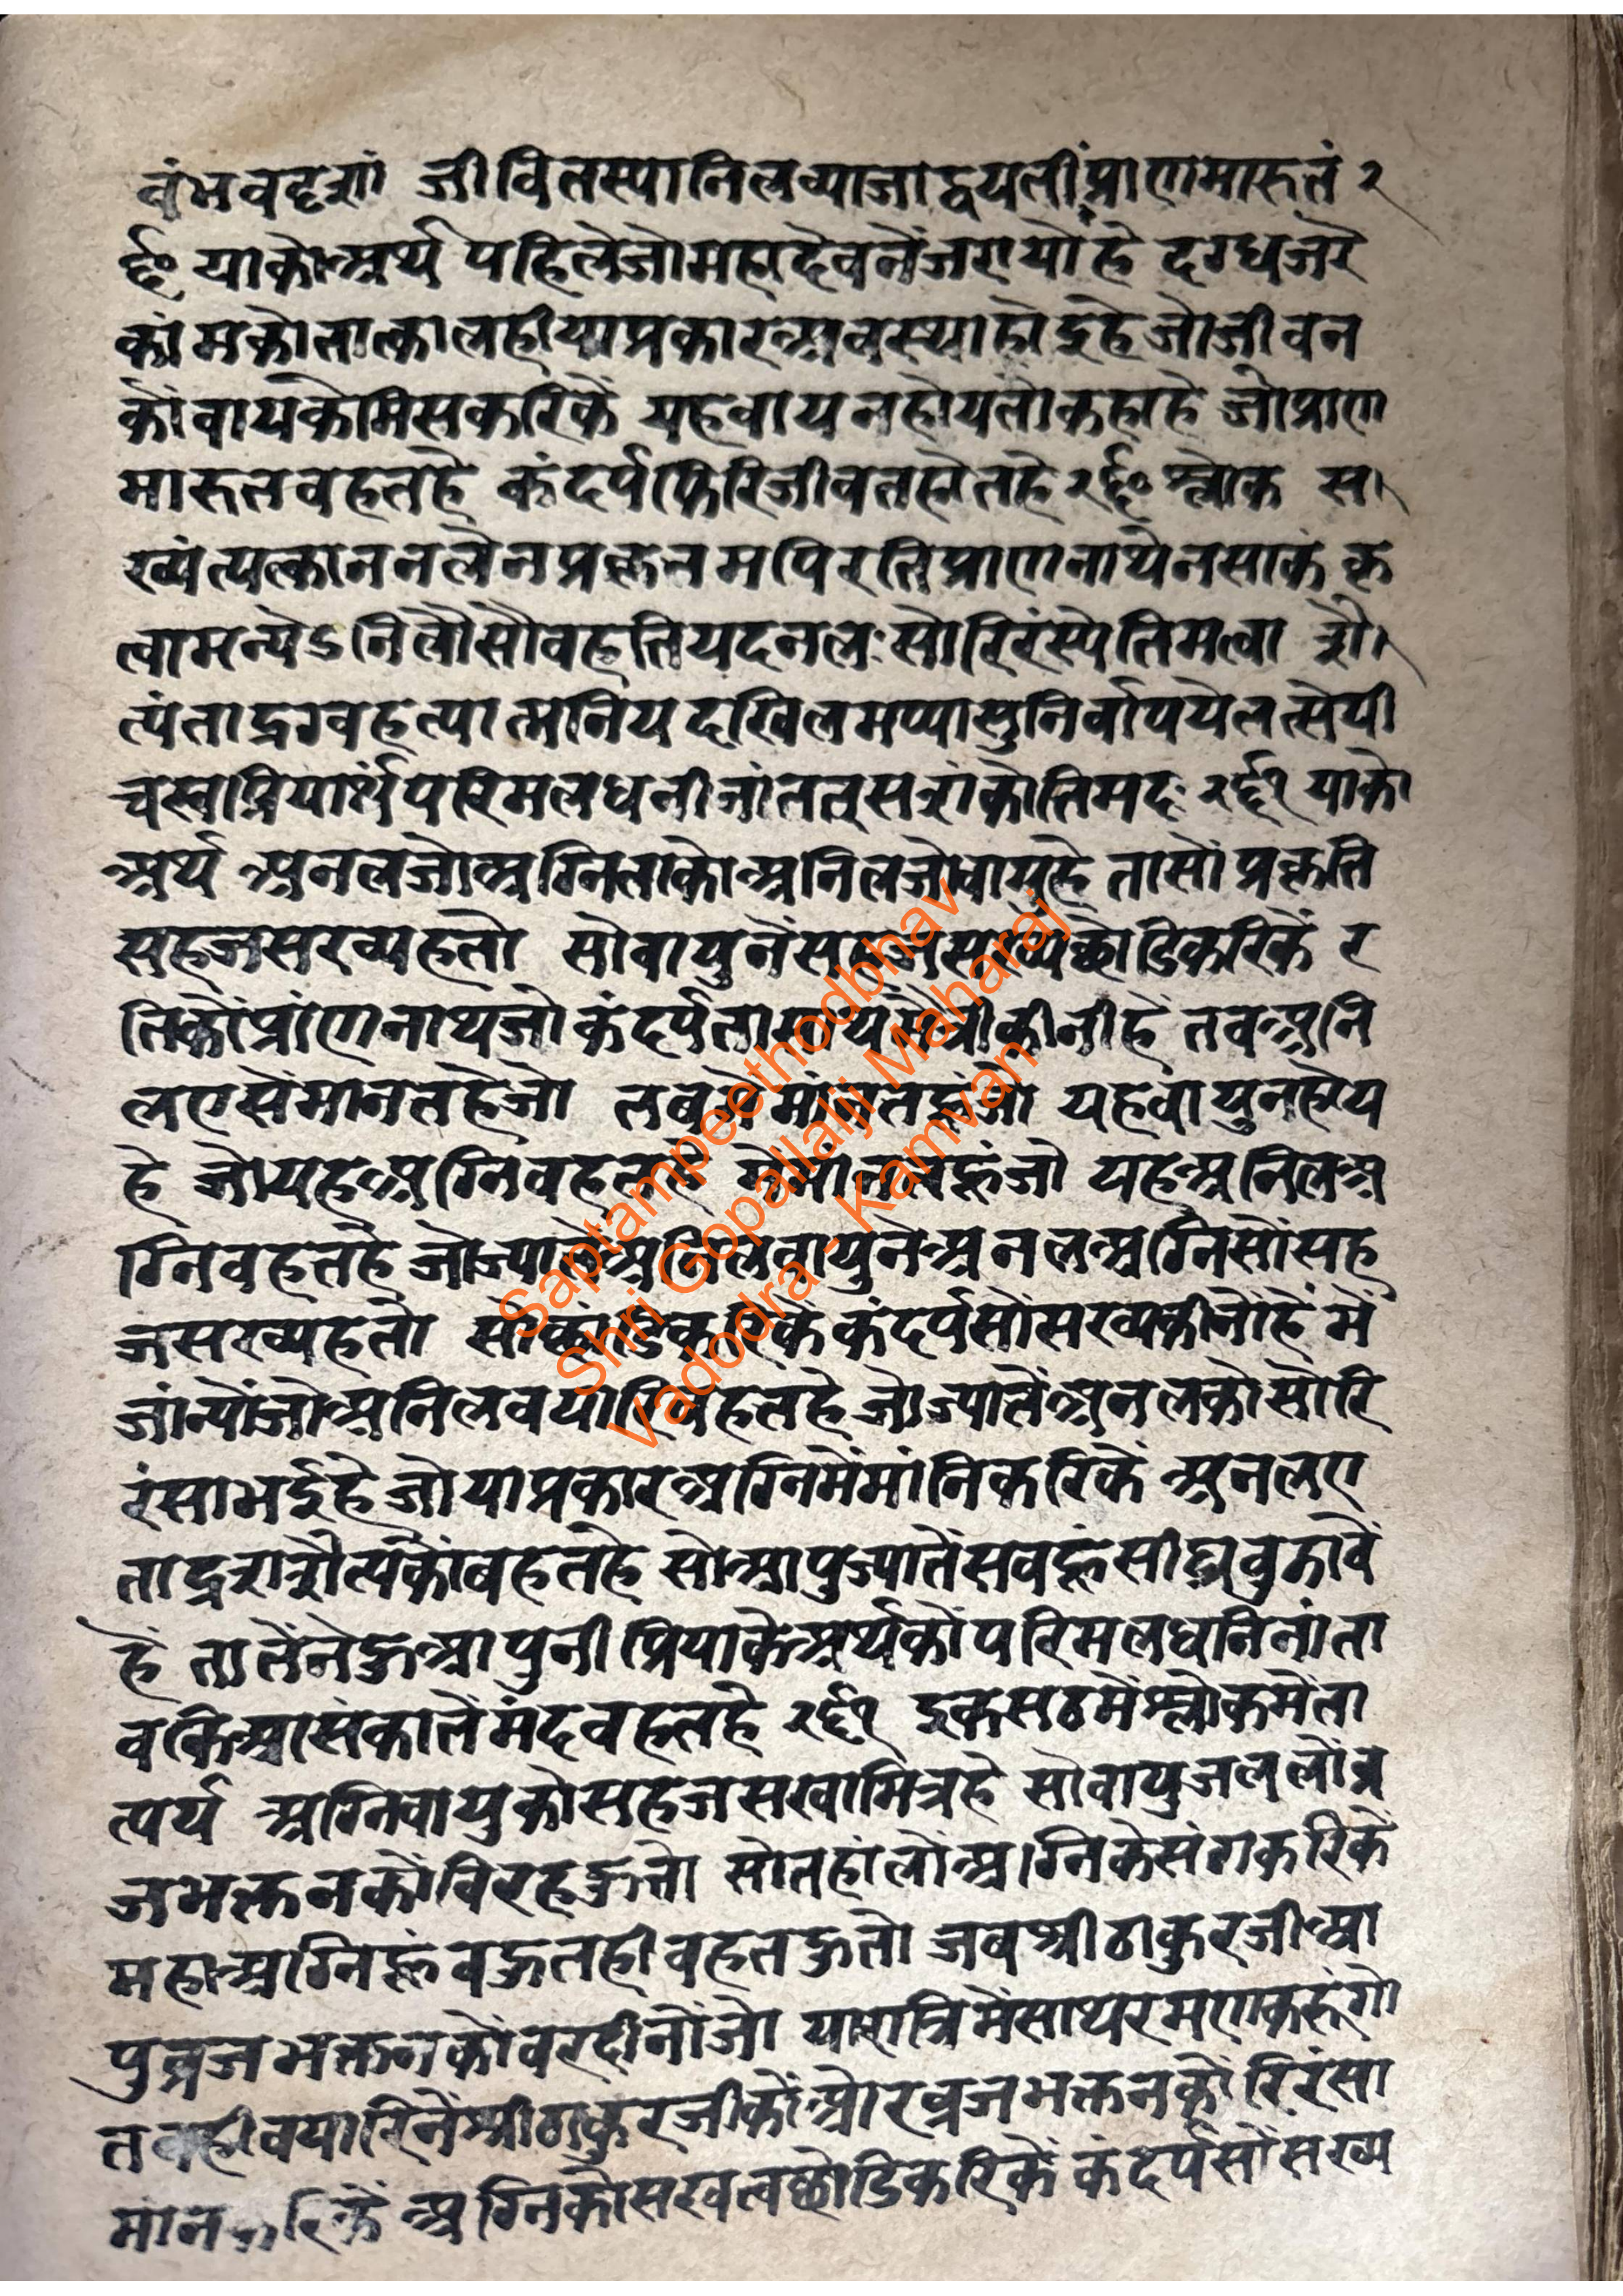 वंभवदृशां जीवितस्यानिलव्याजाद्वयतीप्राणमारुतं २
६० याकोअर्थ पहिलेजोमहादेवनेंजरायोहे दग्धजरे
कांमकोतात्कालहीयाप्रकारअवस्थाहोइहेजोजीवन
कोंवायकेमिसकरिकें यहवायनहोयतोकहाहे जोप्राण
मारुतवहतहे कंदर्पफिरिजीवतहोतहे२६०श्लोक सा
ख्यंत्यत्कानलेनप्रकृतमपिरतिप्राणनाथेनसाकं कृ
त्वामन्येऽनिलौसौवहतियदनलःसोरिरंस्येतिमत्वा शै
त्यंताद्रग्वहत्यात्मनियदखिलमप्यासुनिर्वापयेतत्सेपी
चस्वप्रियार्थंपरिमलधनीजांततत्सशांकोतिमदः २६१ याको
अर्थ अनलजोअग्निताकोअनिलजोवायुहे तासोंप्रकृति
सहजसख्यहतो सोवायुनेंसहजसख्यछोडिकरिकें र
तिकोंप्रांणनाथजोकंदर्पतासायमैत्रीकीनीहे तवअनि
लएसेंमानतहेजो तवमेंमांनतहूंजो यहवायुनहोय
हे जोयहअग्निवहतहे मेंमांनतहूंजो यहअनिलअ
ग्निवहतहे जोज्यातेंअनिलवायुनेअनलअग्निसोंसह
जसख्यहतो सोछांडिकरिकेंकंदर्पसोंसख्यकीनोंहें में
जांन्योंजोअनिलवयारिवहतहे जोज्यातेंअनलकोसोरि
रंसाभईहे जोयाप्रकारअग्निमेंमांनिकरिकें अनलए
ताद्रशशैत्यकोंवहतहे सोआपुज्यातेंसवहूंसीघ्रवुझावें
हें तातेंनेकुआपुनीप्रियाकेअर्थकोंपरिमलधनिनांता
वकिआसंकातेंमंदवहतहे २६१ इकसठमेंश्लोकमेंता
त्पर्य अग्निवायुकोसहजसखामित्रहे सोवायुजललोंव्र
जभक्तनकोंविरहहुतो सोतहांलोंअग्निकेसंगकरिकें
महाअग्निहूंवहुतहीवहतहुतो जवश्रीठाकुरजीआ
पुव्रजभक्तनकोंवरदीनोंजो यारात्रिमेंसाथरमणकरूंगो
तवहीवयारिनेंश्रीठाकुरजीकोंओरव्रजभक्तनकोंरिरंसा
मानकरिकें अग्निकोसखत्वछोडिकरिकेंकंदर्पसोंसख्य
Saptampeethodbhav
Shri Gopallalji Maharaj
Vadodra - Kamvan